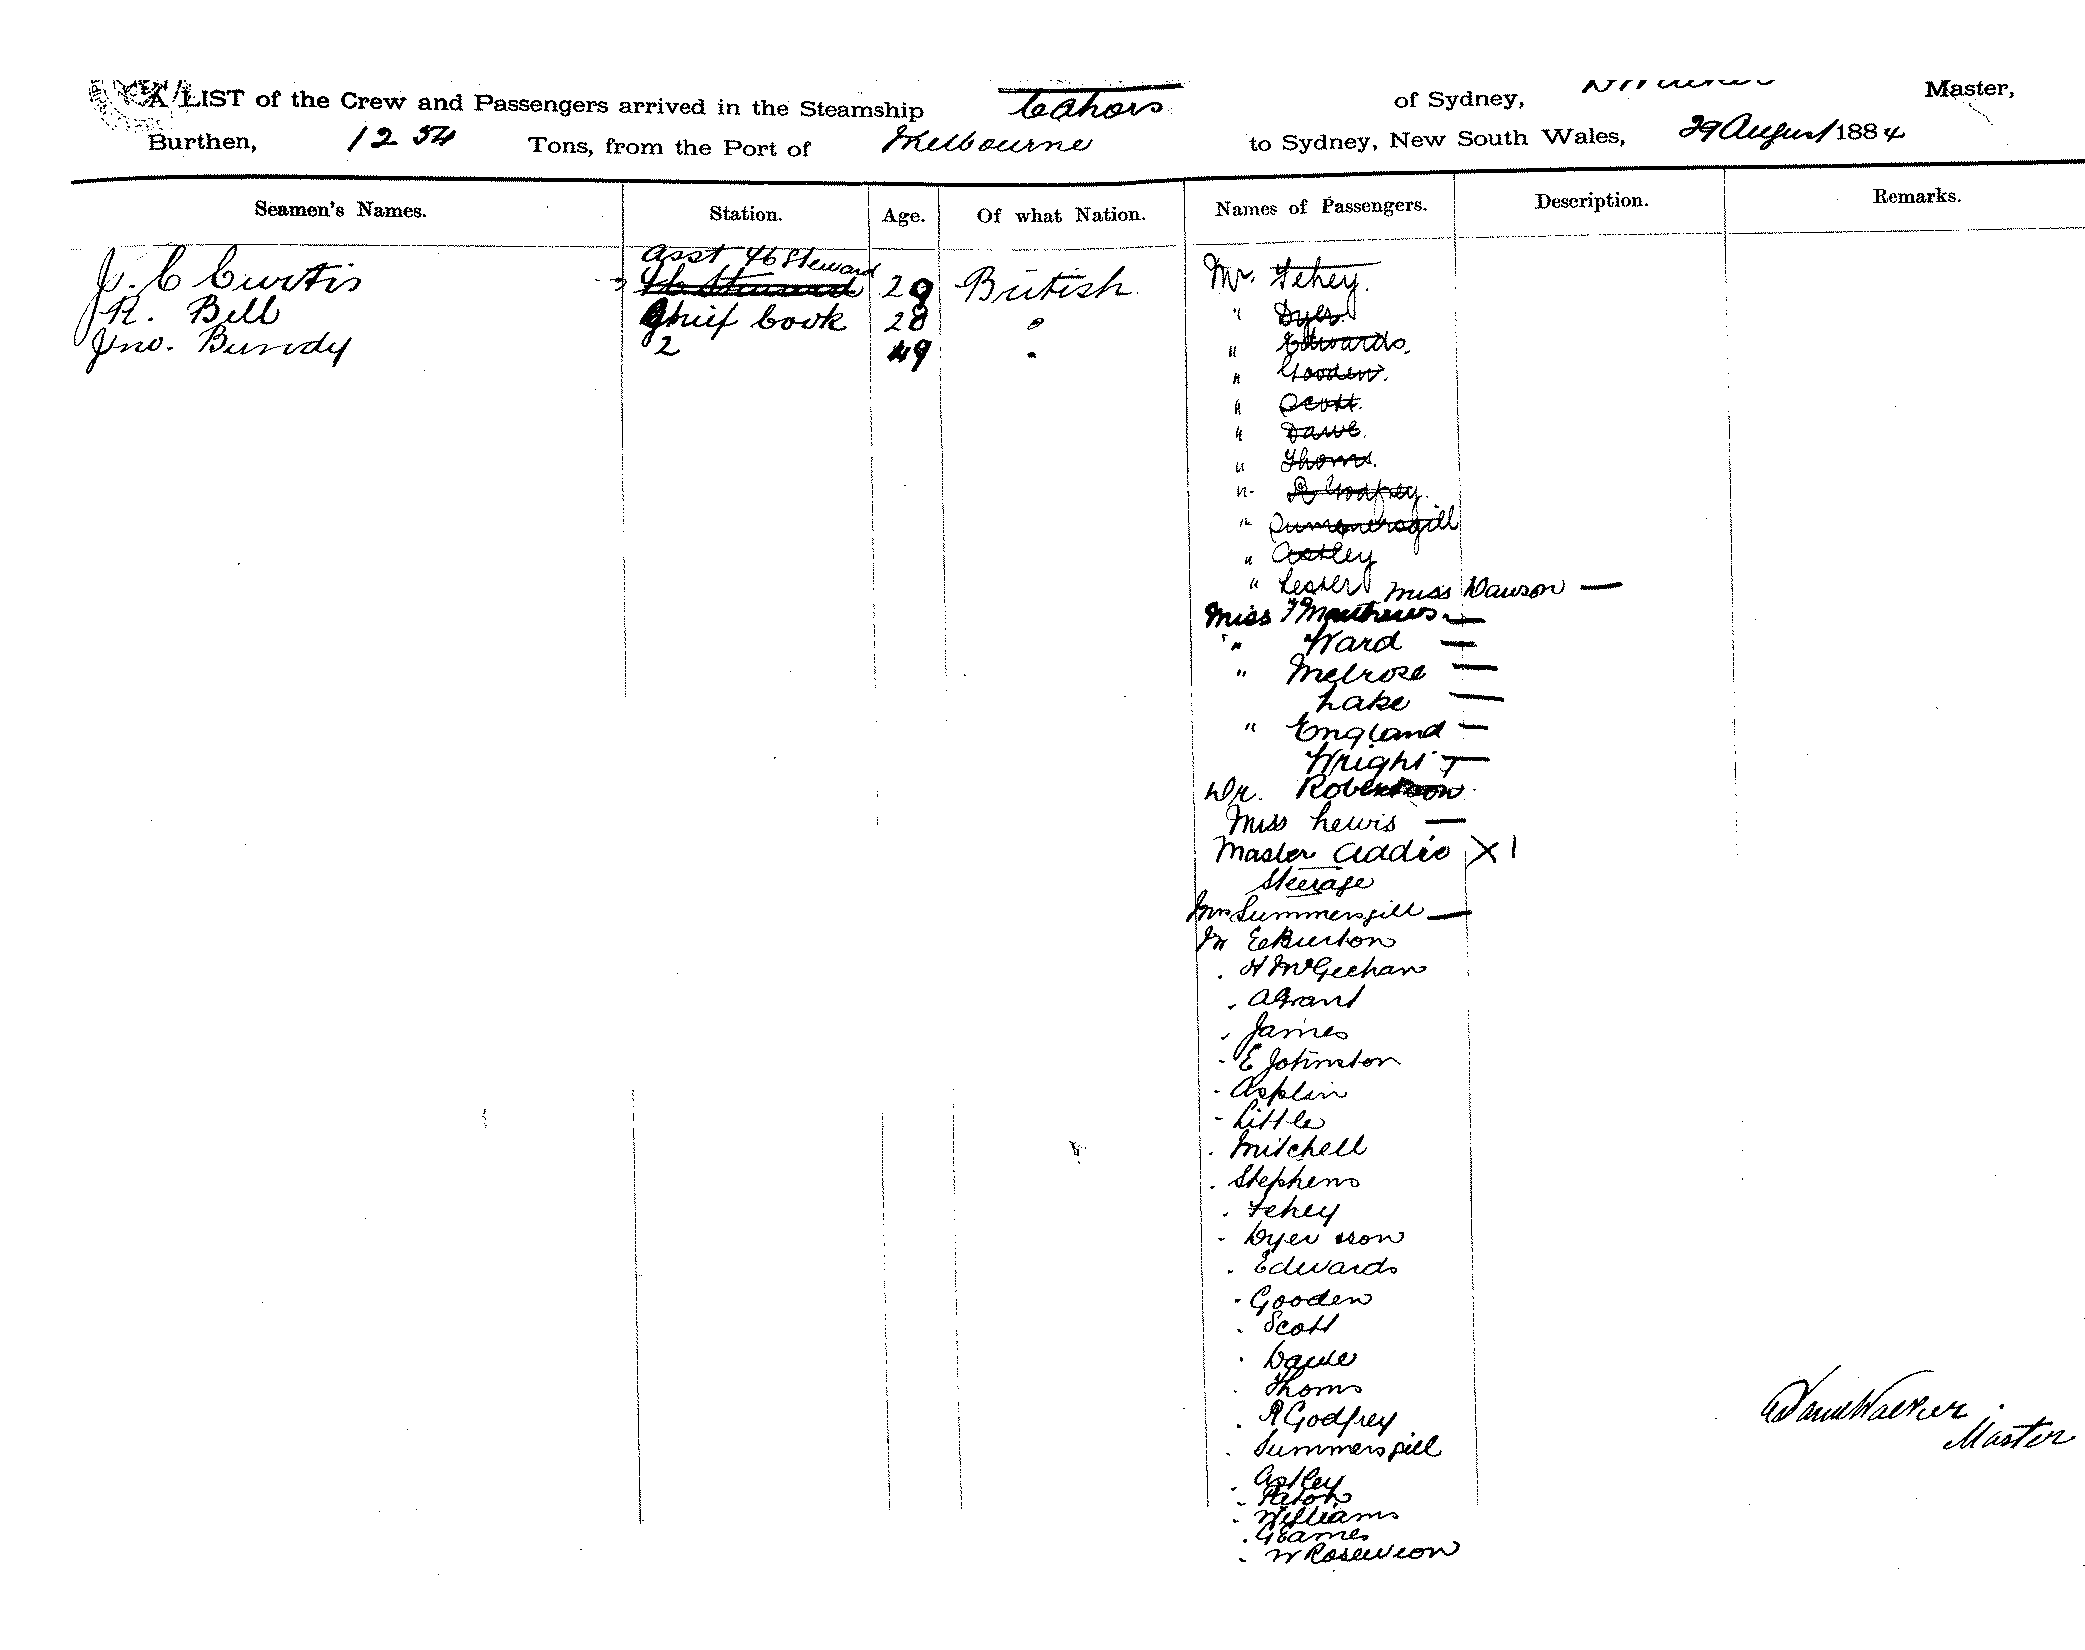 A LIST of the Crew and Passengers arrived in the Steamship Cahors of Sydney, Master,
Burthen, 1254 Tons, from the Port of Melbourne to Sydney, New South Wales, 29 August 1884
Seamen's Names. Station. Age. Of what Nation. Names of Passengers. Description. Remarks.
Asst Steward
J. C Curtis 29 British Mr. Fehey.
R. Bell Chief Cook 28 " " Dyer
Jno. Bundy 2 49 " " Edwards.
" Gooden.
" Scott.
" Dawe.
" Thoms.
" R Godfrey.
" Summersgill
" Astley
" Lester Miss Dawson —
Miss Matthews —
" Ward —
" Melrose —
Lake —
" England —
Wright —
Dr. Robertson
Miss Lewis —
Master Addie X 1
Steerage
Mrs Summersgill —
Mr E Burton
. H McGeehan
. A Grant
. James
- E Johnston
- Asplin
- Little
. Mitchell
. Stephens
. Fehey
- Dyer
. Edwards
. Gooden
. Scott
. Dawe
. Thoms
. R Godfrey
. Summersgill
. Astley
. Paton
. Williams
. G Eames
. W
Walker
Master